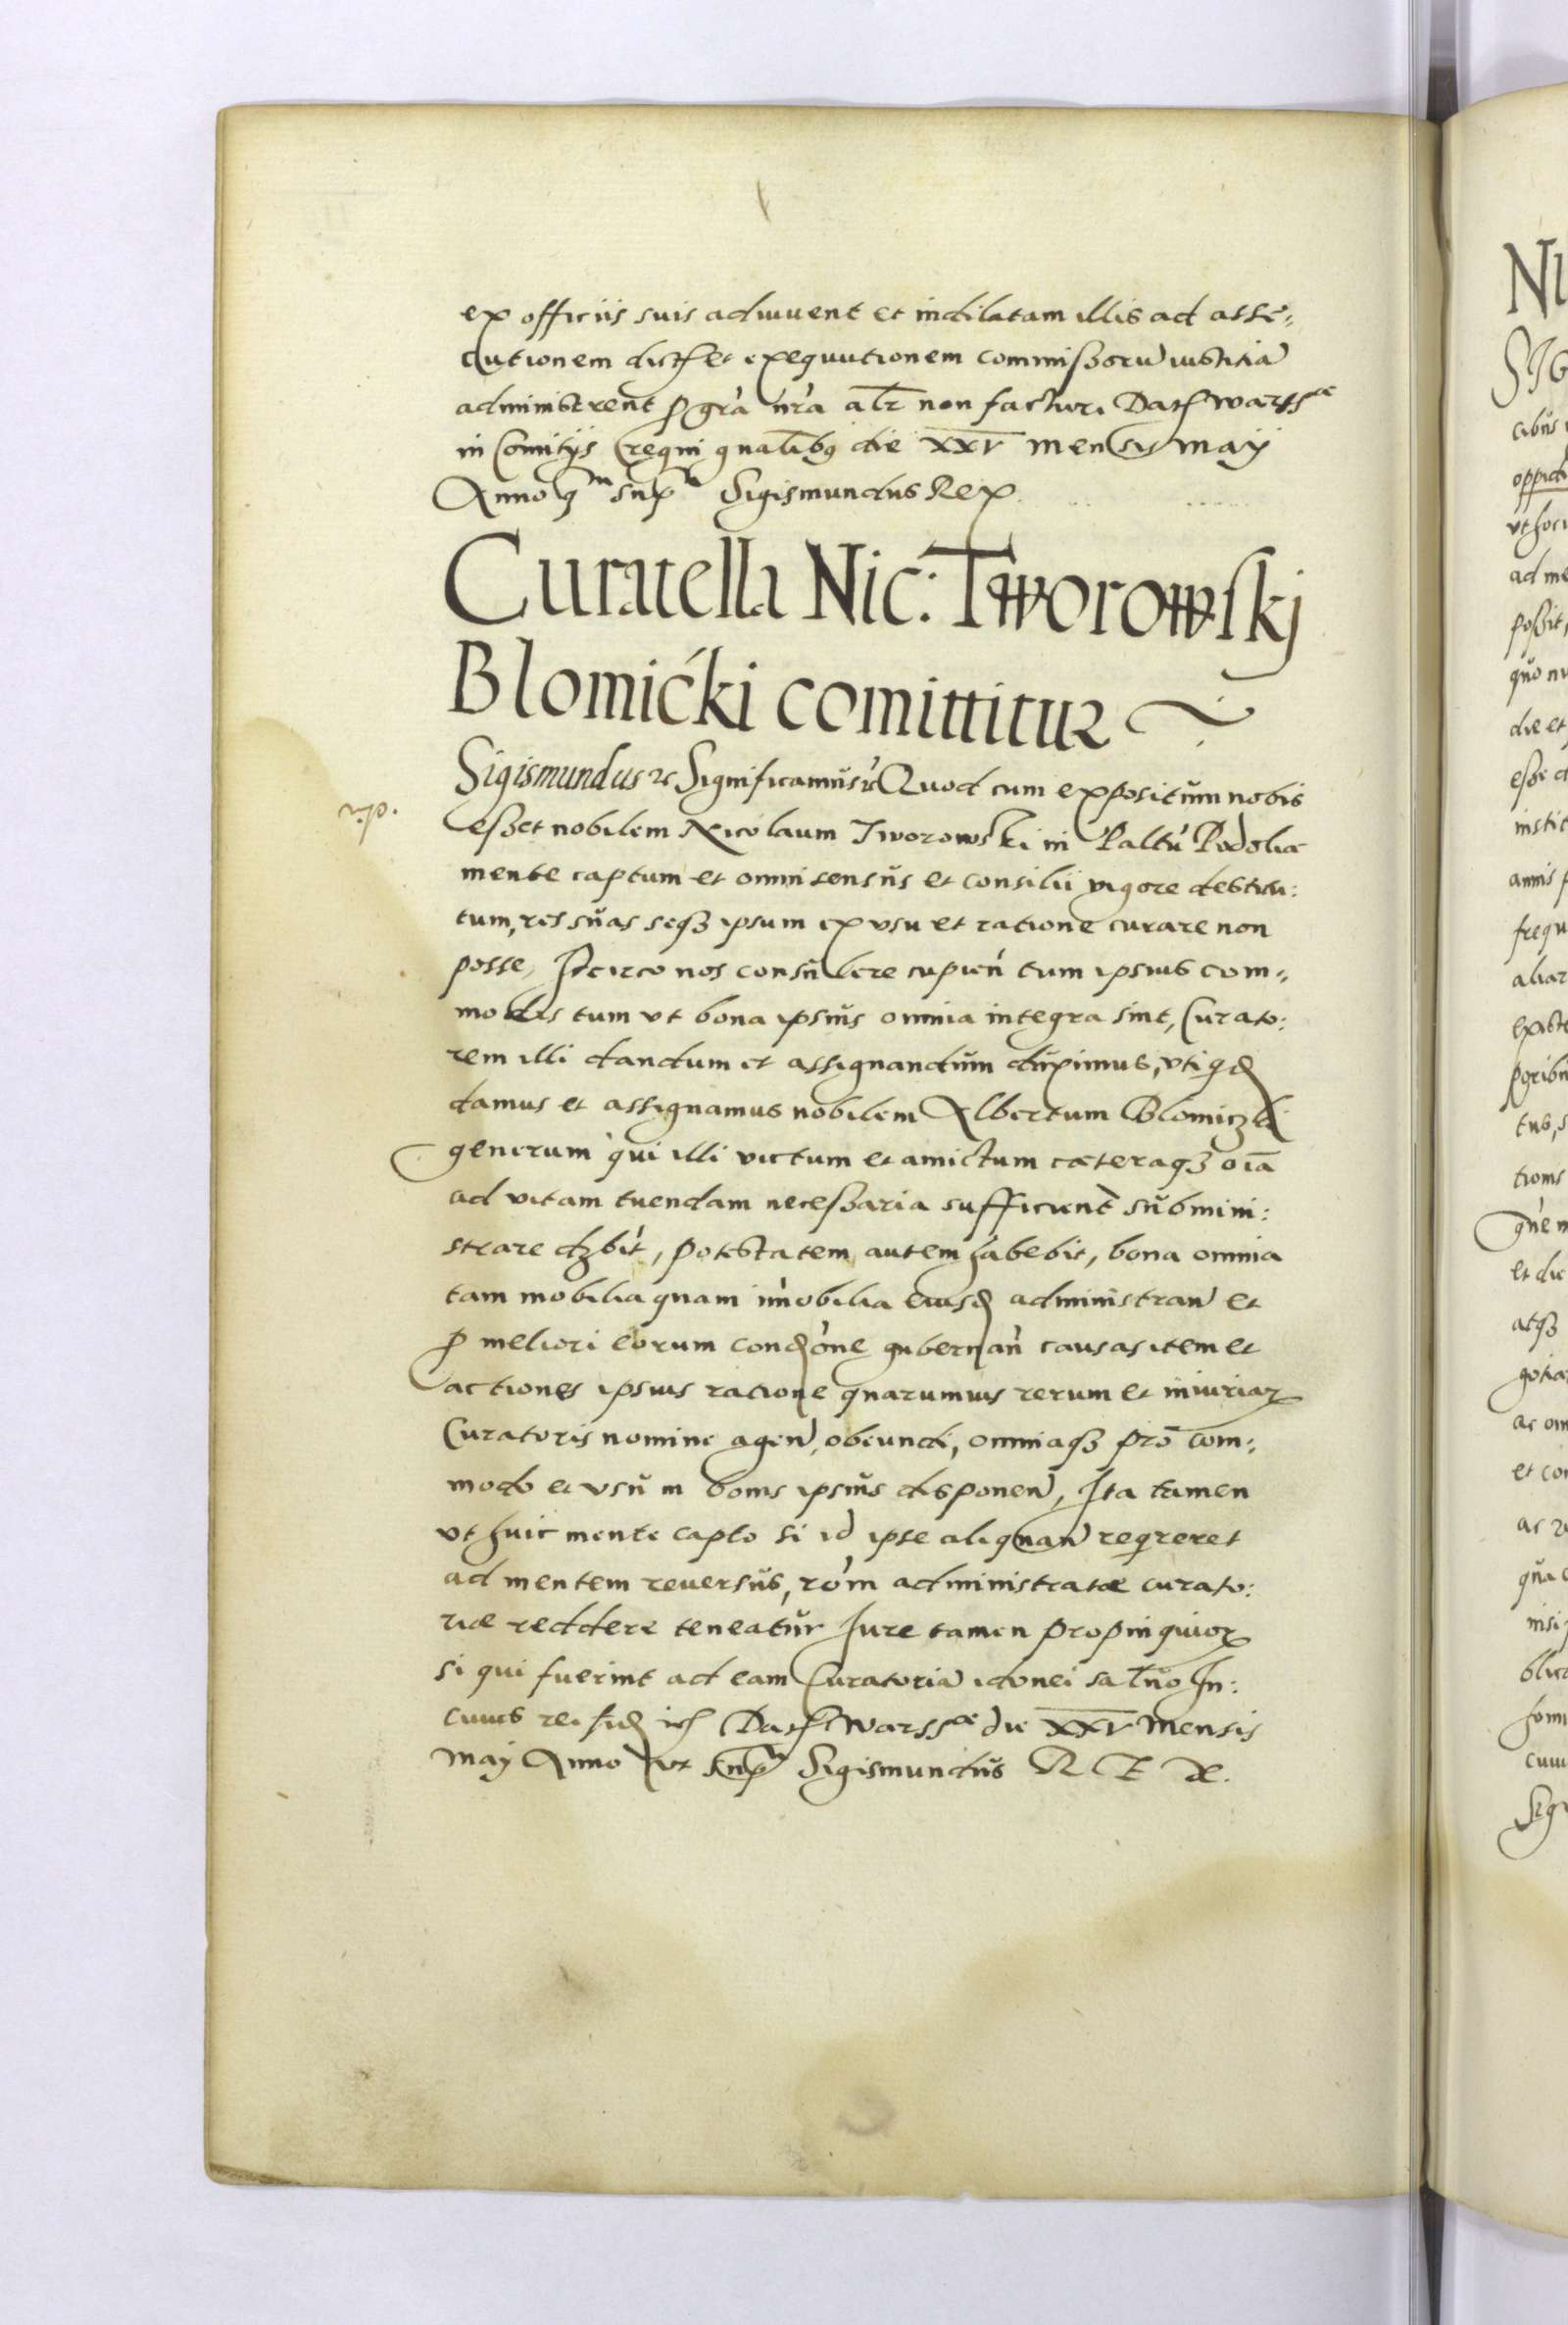 ex officiis suis adiuuent et indilatam illis ad asse:,
cutionem dict et exequutionem commissoru iustitia
administrent p gra nra alr non factur. Dat Warss ae
in Comitijs regni gnalibq die XXV mensis Maij
Anno q m sup a Sigismundus Rex
Curatella Nic: Tworowskj
Blomićki comittitur
Sigismundus etc Significamus etc Quod cum expositum nobis
esset nobilem Nicolaum Tworowski in Paltu Podoliae
mente captum et omni sensus et consilii vigore destitu:
tum, res suas seqz ipsum ex vsu et ratione curare non
posse, Idcirco nos consulere cupien tum ipsius com:,
modis tum vt bona ipsius omnia integra sint, Curato:
rem illi dandum et assignandum duximus, vti qd
damus et assignamus nobilem Albertum Blomiczki
generum qui illi victum et amictum caeteraqz oia
ad vitam tuendam necessaria sufficient submini:
strare debit, potestatem autem habebit, bona omnia
tam mobilia quam immobilia eiusd administran et
p meliori eorum condone gubernan causas item et
actiones ipsius ratione quarumuis rerum et iniuriar
Curatoris nomine agen, obeundi, omniaqz pro com:,
modo et vsu in bonis ipsius disponen, Ita tamen
vt huic mente capto si id ipse aliquan reqreret
ad mentem reuersus, rom administratae curato:
riae reddere teneatur Iure tamen propinquior
si qui fuerint ad eam Curatoria idonei saluo In:
cuius rei fid etc Dat Warss ae die XXV mensis
Maij Anno vt sup a Sigismundus R E X.